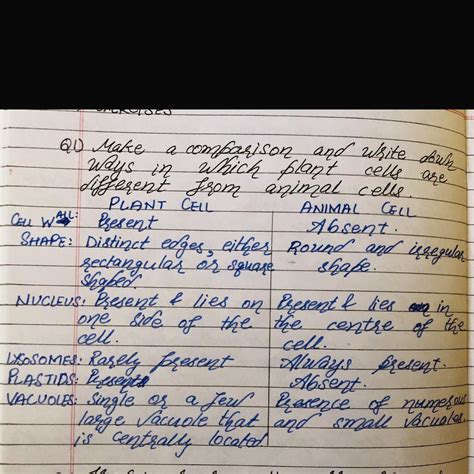 EXERCISES
Q1) Make a comparison and write down
ways in which plant cells are
different from animal cells.
PLANT CELL ANIMAL CELL
CELL WALL: Present Absent.
SHAPE: Distinct edges, either Round and irregular
rectangular or square shape.
shaped
NUCLEUS: Present & lies on Present & lies in
one side of the the centre of the
cell. cell.
LYSOSOMES: Rarely present Always present.
PLASTIDS: Present Absent.
VACUOLES: Single or a few Presence of numerous
large vacuole that and small vacuoles.
is centrally located